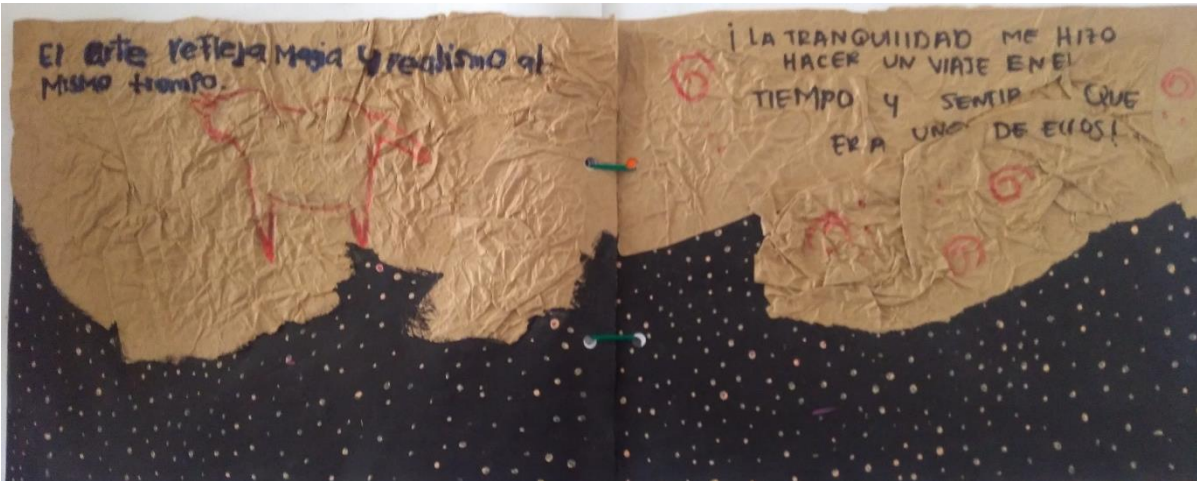 El arte refleja Magia y realismo al
Mismo tiempo.
¡LA TRANQUILIDAD ME HIZO
HACER UN VIAJE EN EL
TIEMPO Y SENTIR QUE
ERA UNO DE ELLOS!